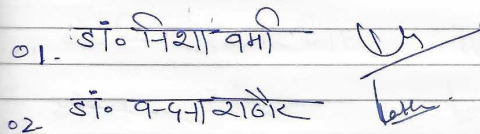 01. डॉ० निशा वर्मा
02 डॉ० वन्दना राठौर